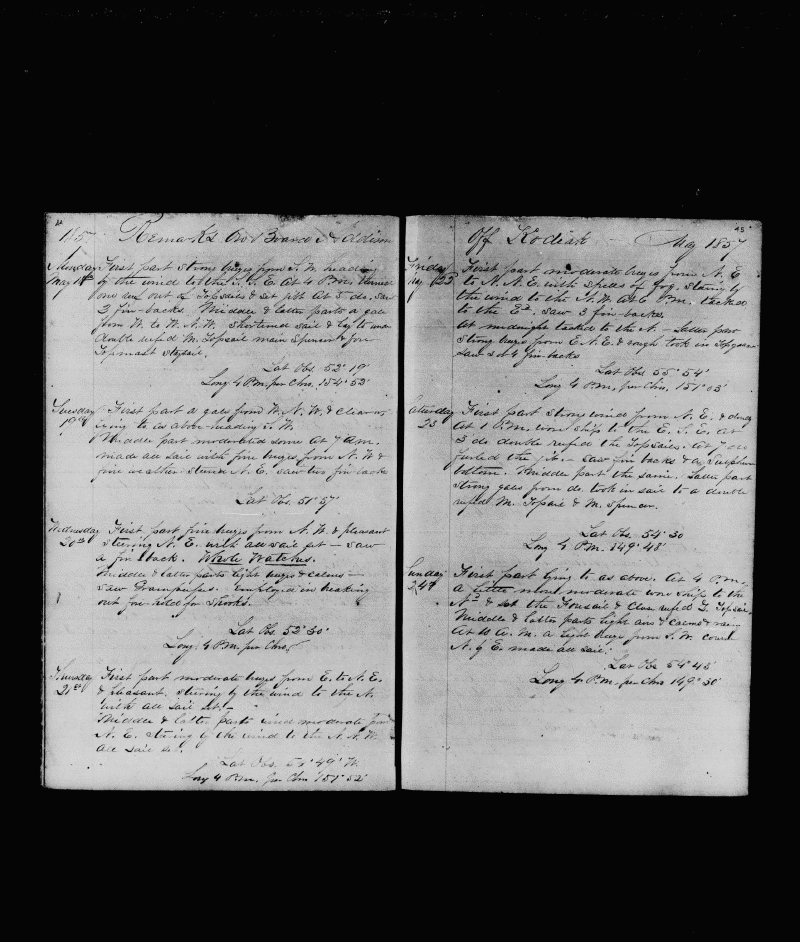 185 Remarks On Board Addison
Monday First part strong breezes from S. W. heading
May 18th by the wind to the S. S. E. At 4 P.M. turned
one reef out of Topsails & set jib At 5 do. saw
2 fin-backs. Middle & latter parts a gale
from W. to W. N. W. Shortened sail & lay to under
double reefd M. Topsail main Spencer & fore
Topmast staysail.
Lat Obs. 52° 19'
Long 4 P.M. per Chro. 154° 53'
Tuesday First part a gale from W. N. W. & clear
19th lying to as above heading S. W.
Middle part moderated some At 7 A.M.
made all sail with fine breezes from N. W &
fine weather steered N. E. saw two fin backs
Lat Obs. 51° 57'
Wednesday First part fine breezes from N. W. & pleasant
20th steering N. E. with all sail set – saw
a fin back. Whole Watches.
Middle & latter parts light breezes & calms –
saw Grampuses. Employed in breaking
out fore hold for Shooks.
Lat Obs 52° 30'
Long. 4 P.M. per Chro.
Thursday First part moderate breezes from E. to N. E.
21st & pleasant. steering by the wind to the N.
with all sail set. –
Middle & latter parts wind moderate from
N. E. steering by the wind to the N. N. W.
all sail set.
Lat Obs. 49' N.
Long 4 P.M. per Chro 151° 52'
45
Off Kodiak – May 1857
Friday First part moderate breezes from N. E
to N. N. E. with spells of fog, steering by
the wind to the N. W. At 6 P.M. tacked
to the Ed. saw 3 fin-backs.
At midnight tacked to the N. – Latter part
strong breezes from E. N. E. & rough took in Topgallant
saw 3 or 4 fin backs
Lat Obs 55° 54'
Long 4 P.M. per Chro. 151° 03'
Saturday First part strong wind from N. E. & cloudy
23 At 1 P.M. wore ship to the E. S. E. At
5 do double reefed the Topsails. At 7 do
furled the jib. – saw fin backs & a Sulphur
bottom. Middle part the same. Latter part
strong gales from do. took in sail to a double
reefd M. Topsail & M. Spencer.
Lat Obs. 54° 30
Long 4 P.M. 149° 48'
Sunday First part lying to as above. At 4 P.M.,
24th a little more moderate wore ship to the
Nd & set the Foresail & close reefd F. Topsail,
Middle & latter parts light airs & calms & rain
At 10 A.M. a light breeze from S. W. course
N. by E. made all sail.
Lat Obs 54° 45'
Long 4 P.M. per Chro 149° 30'